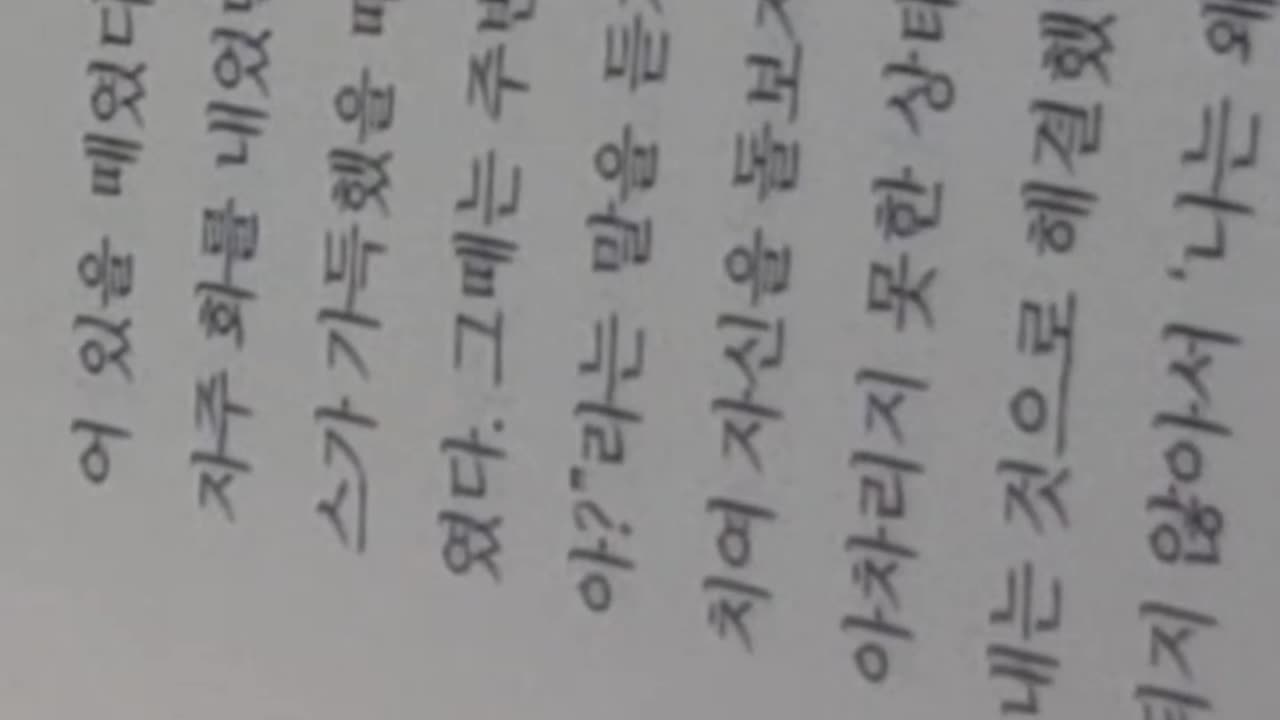 어 있을 때였다
자주 화를 내었
스가 가득했을 때
였다. 그때는 주변
아?"라는 말을 듣
치여 자신을 돌보
아차리지 못한 상태
내는 것으로 해결했
지 않아서 '나는 왜